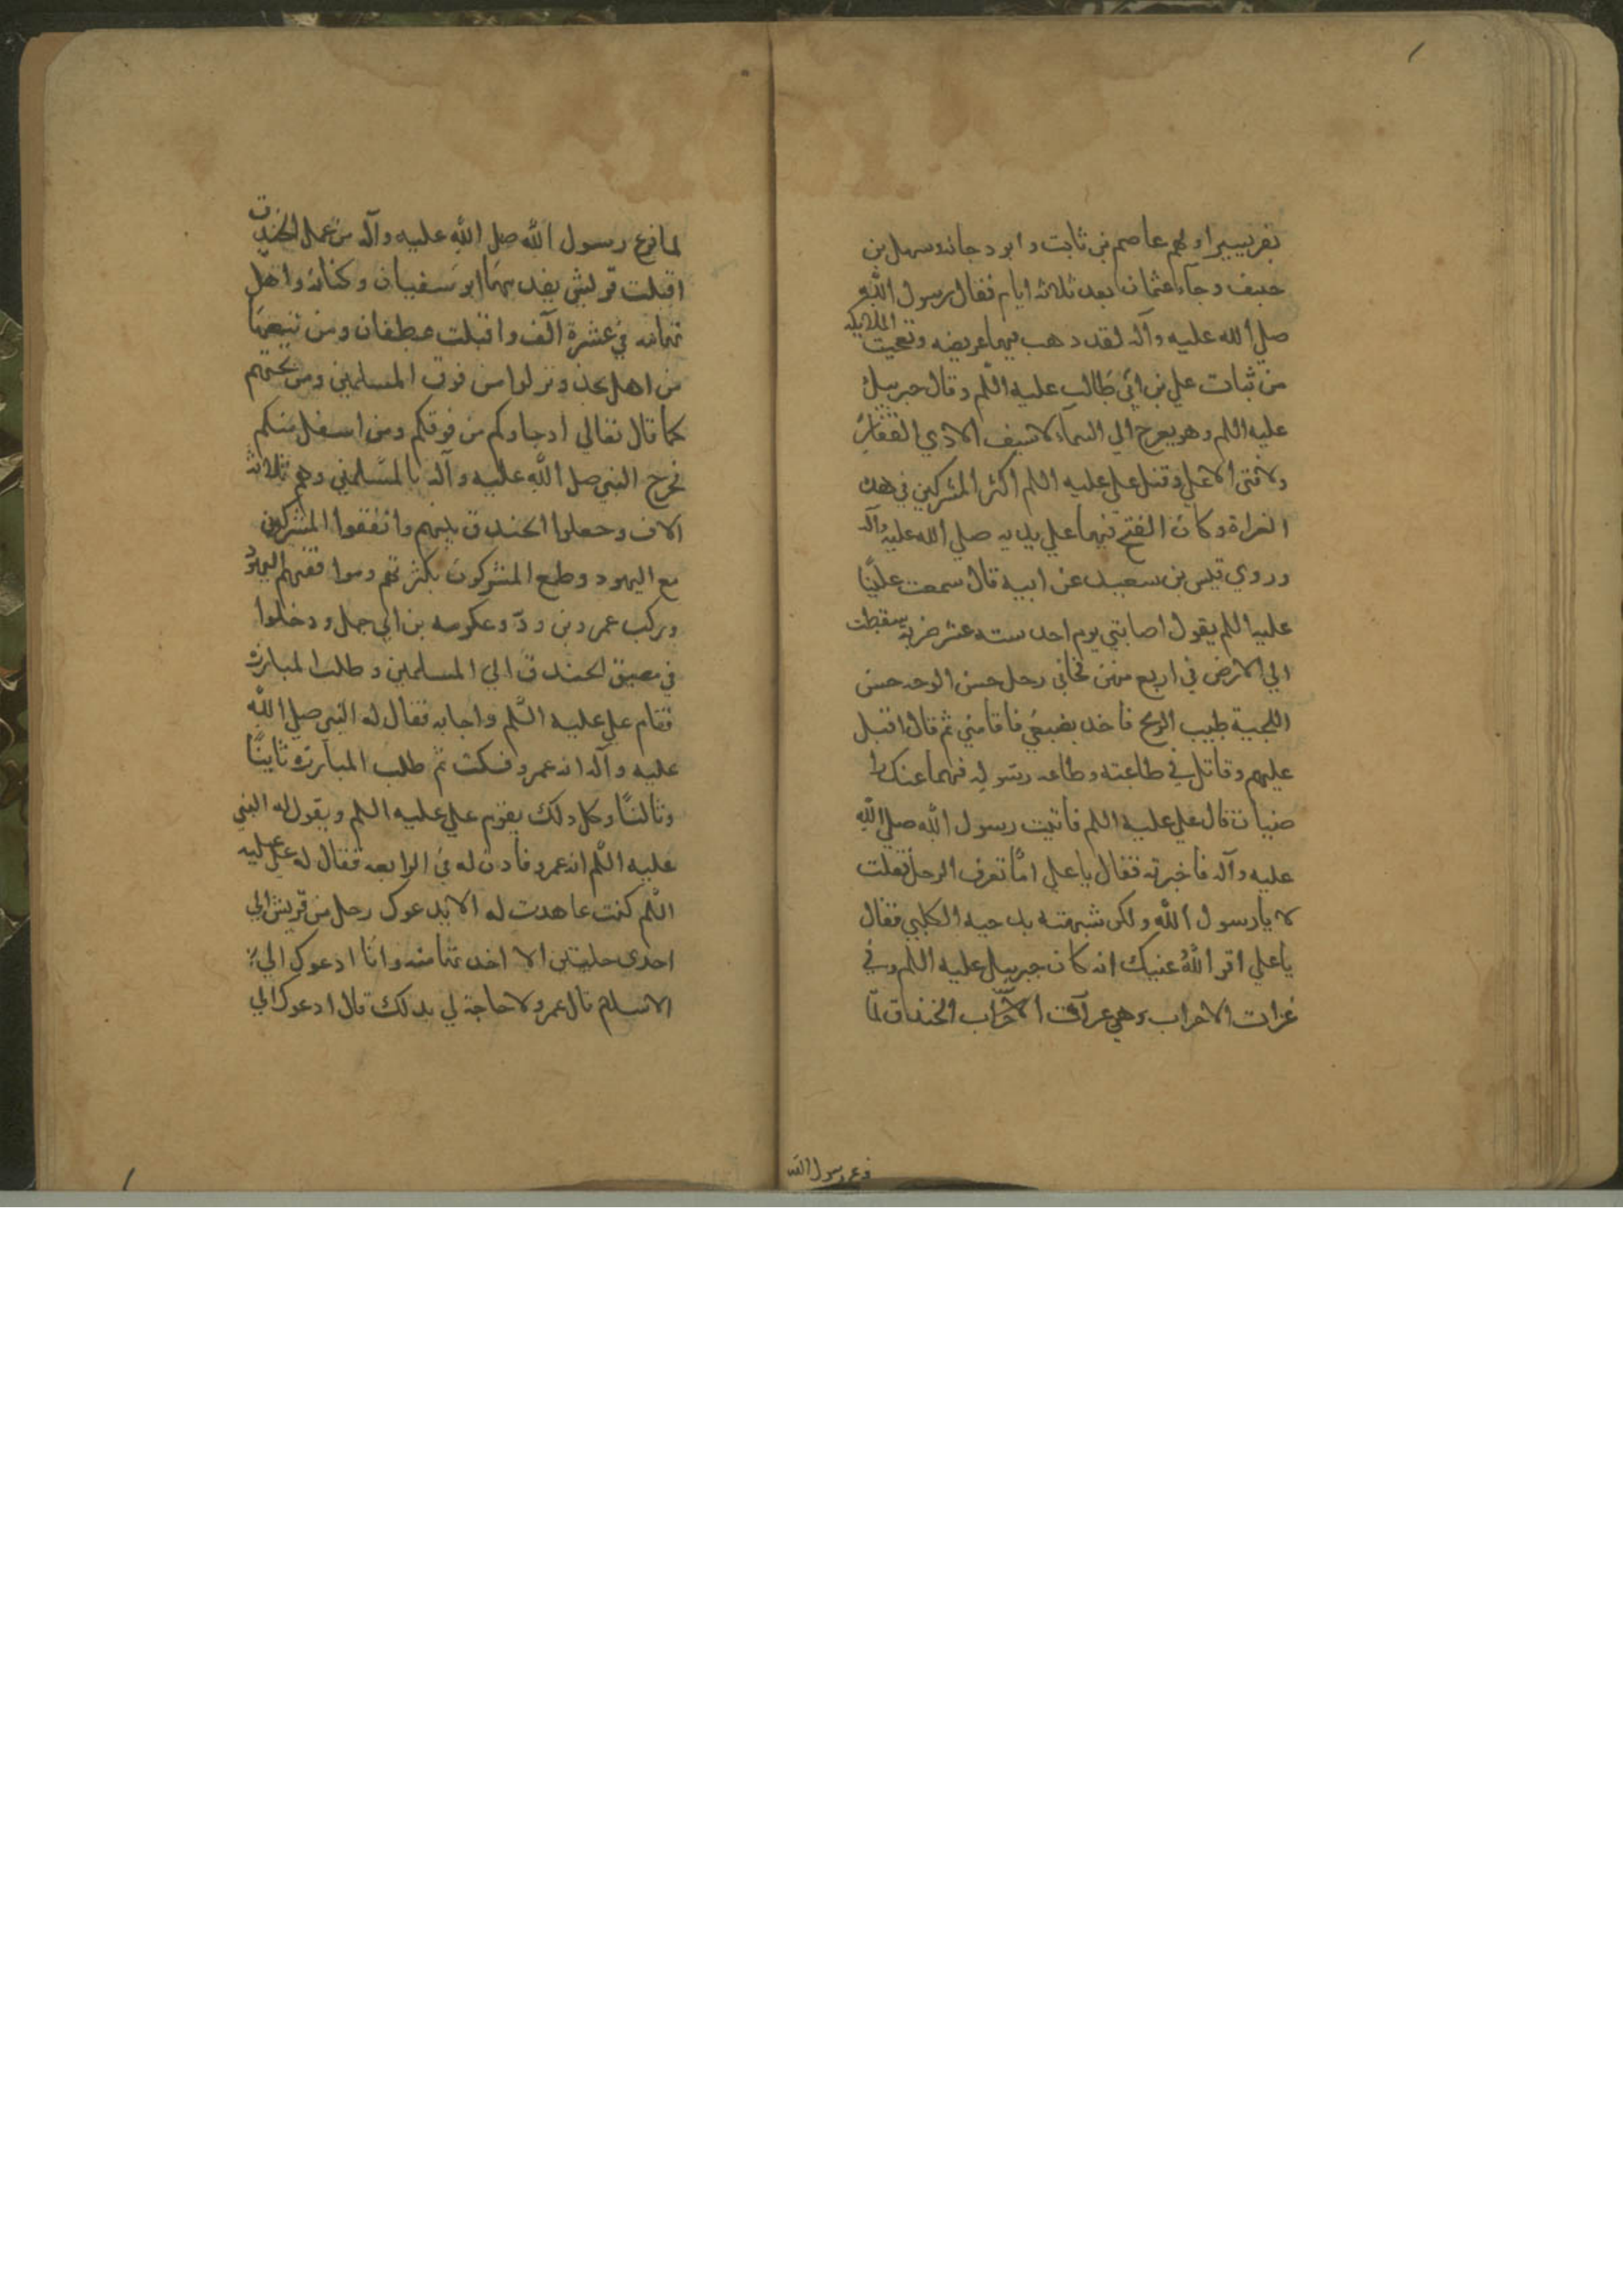 نفر يسير اولهم عاصم بن ثابت وابو دجانه وسهل بن
حنيف وجآء عثمان بعد ثلاثه ايام فقال رسول الله
صلي الله عليه وآله لقد ذهب فيها عريضه وتعجبت الملايكه
من ثبات علي بن ابي طالب عليه السلم وقال جبرييل
عليه السلم وهو يعرج الي السماء لا سيف الا ذي الفقار
ولا فتى الا علي وقتل علي عليه السلم اكثر المشركين في هذه
الغزاة وكان الفتح فيها علي يديه صلي الله عليه وآله
وروي قيس بن سعد عن ابيه قال سمعت عليًّا
عليه السلم يقول اصابتي يوم احد سته عشر ضربة سقطت
الي الارض في اربع منهن فجاني رجل حسن الوجه حسن
اللحية طيب الريح فاخذ بضبعي فاقامني ثم قال اقبل
عليهم وقاتل في طاعته وطاعه رسوله فهما عنك را
ضيان قال علي عليه السلم فاتيت رسول الله صلي الله
عليه وآله فاخبرته فقال يا علي امّا تعرف الرجل فقلت
لا يا رسول الله ولكن شبهته بدحيه الكلبي فقال
يا علي اقر اللهُ عنيك انه كان جبرييل عليه السلم وفي
غزات الاحزاب وهي غزآة الاحزاب الخندق لمّا
فرغ رسول الله
لما فرغ رسول الله صلي الله عليه وآله من عمل الخندق
اقبلت قريش يقدمها ابو سفيان وكنانه واهل
تهامه في عشرة آلف واقبلت غطفان ومن تبعها
من اهل نجد ونزلوا من فوق المسلمين ومن تحتهم
كما قال تعالي اذ جاوكم من فوقكم ومن اسفل منكم
فخرج النبي صلي الله عليه وآله بالمسلمين وهم ثلاثه
الاف وجعلوا الخندق بينهم واتفقوا المشركين
مع اليهود وطمع المشركون بكثرتهم وموافقتهم اليهود
وركب عمرو بن ودّ وعكرمه بن ابي جهل ودخلوا
في مضيق الخندق الي المسلمين وطلب المبارزه
فقام علي عليه السّلم واجابه فقال له النبي صلي الله
عليه وآله انه عمرو فسكت ثم طلب المبارزة ثانيًا
وثالثًا وكل ذلك يقوم علي عليه السلم ويقول له النبي
عليه السّلم انه عمرو فاذن له في الرابعه فقال له علي عليه
السّلم كنت عاهدت له الا يدعوك رجل من قريش الي
احدي خلتين الا اخذتها منه وانا ادعوك الي
الاسلام قال عمرو لا حاجة لي بذلك قال ادعوك الي